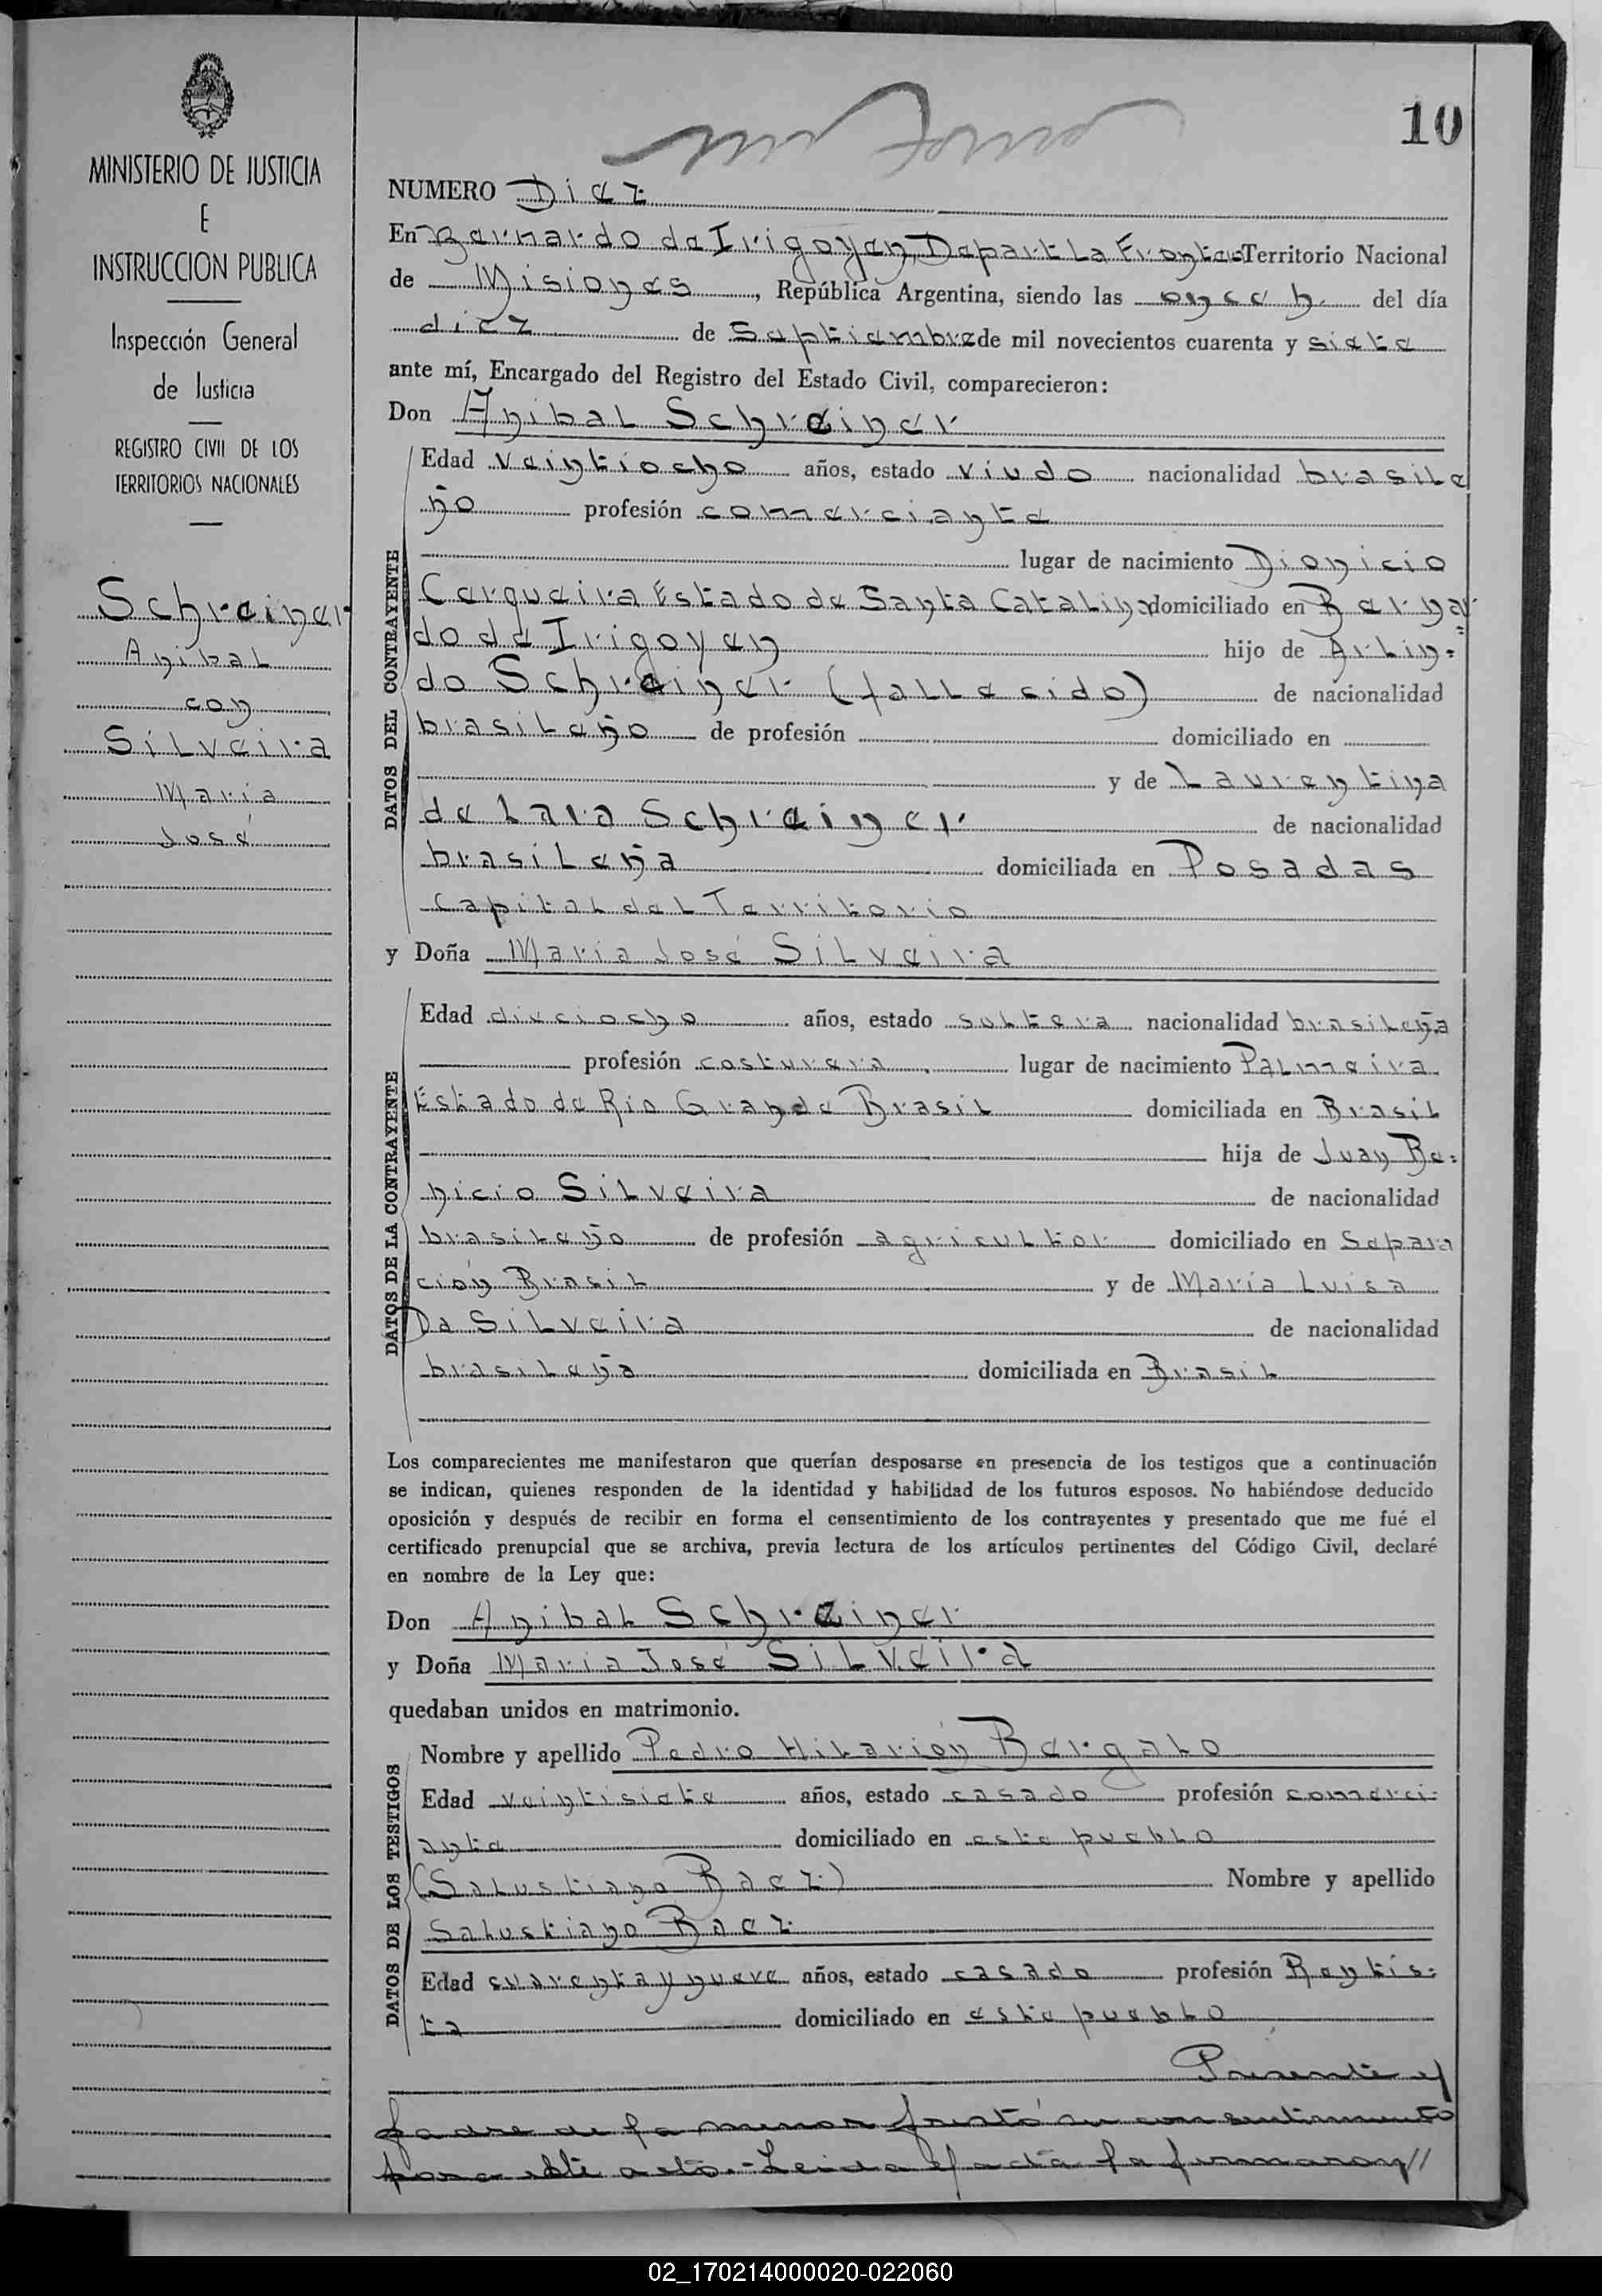 10
MINISTERIO DE JUSTICIA
E
INSTRUCCION PUBLICA
Inspección General
de Justicia
REGISTRO CIVIL DE LOS
TERRITORIOS NACIONALES
Schreiner
Anibal
con
Silveira
María
José
NUMERO Diez
En Bernardo de Irigoyen, Depart La Frontera Territorio Nacional
de Misiones, República Argentina, siendo las once h. del día
diez de Septiembre de mil novecientos cuarenta y siete
ante mí, Encargado del Registro del Estado Civil, comparecieron:
Don Anibal Schreiner
DATOS DEL CONTRAYENTE
Edad veintiocho años, estado viudo nacionalidad brasile
ño profesión comerciante
lugar de nacimiento Dionicio
Cerqueira Estado de Santa Catalina domiciliado en Bernar
do de Irigoyen hijo de Arlin=
do Schreiner (fallecido) de nacionalidad
brasileño de profesión domiciliado en
y de Laurentina
de Lara Schreiner de nacionalidad
brasileña domiciliada en Posadas
Capital del Territorio
y Doña María José Silveira
DATOS DE LA CONTRAYENTE
Edad dieciocho años, estado soltera nacionalidad brasileña
profesión costurera lugar de nacimiento Palmeira
Estado de Rio Grande Brasil domiciliada en Brasil
hija de Juan Be=
nicio Silveira de nacionalidad
brasileño de profesión agricultor domiciliado en Separa
ción Brasil y de María Luisa
Da Silveira de nacionalidad
brasileña domiciliada en Brasil
Los comparecientes me manifestaron que querían desposarse en presencia de los testigos que a continuación
se indican, quienes responden de la identidad y habilidad de los futuros esposos. No habiéndose deducido
oposición y después de recibir en forma el consentimiento de los contrayentes y presentado que me fué el
certificado prenupcial que se archiva, previa lectura de los artículos pertinentes del Código Civil, declaré
en nombre de la Ley que:
Don Anibal Schreiner
y Doña María José Silveira
quedaban unidos en matrimonio.
DATOS DE LOS TESTIGOS
Nombre y apellido Pedro Hilarión Bergalo
Edad veintisiete años, estado casado profesión comerci=
ante domiciliado en este pueblo
(Salustiano Baez) Nombre y apellido
Salustiano Baez
Edad cuarenta y nueve años, estado casado profesión Rentis=
ta domiciliado en este pueblo
Presente el
padre de la menor prestó su consentimiento
para este acto.- Leida el acta la firmaron//
02_170214000020-022060